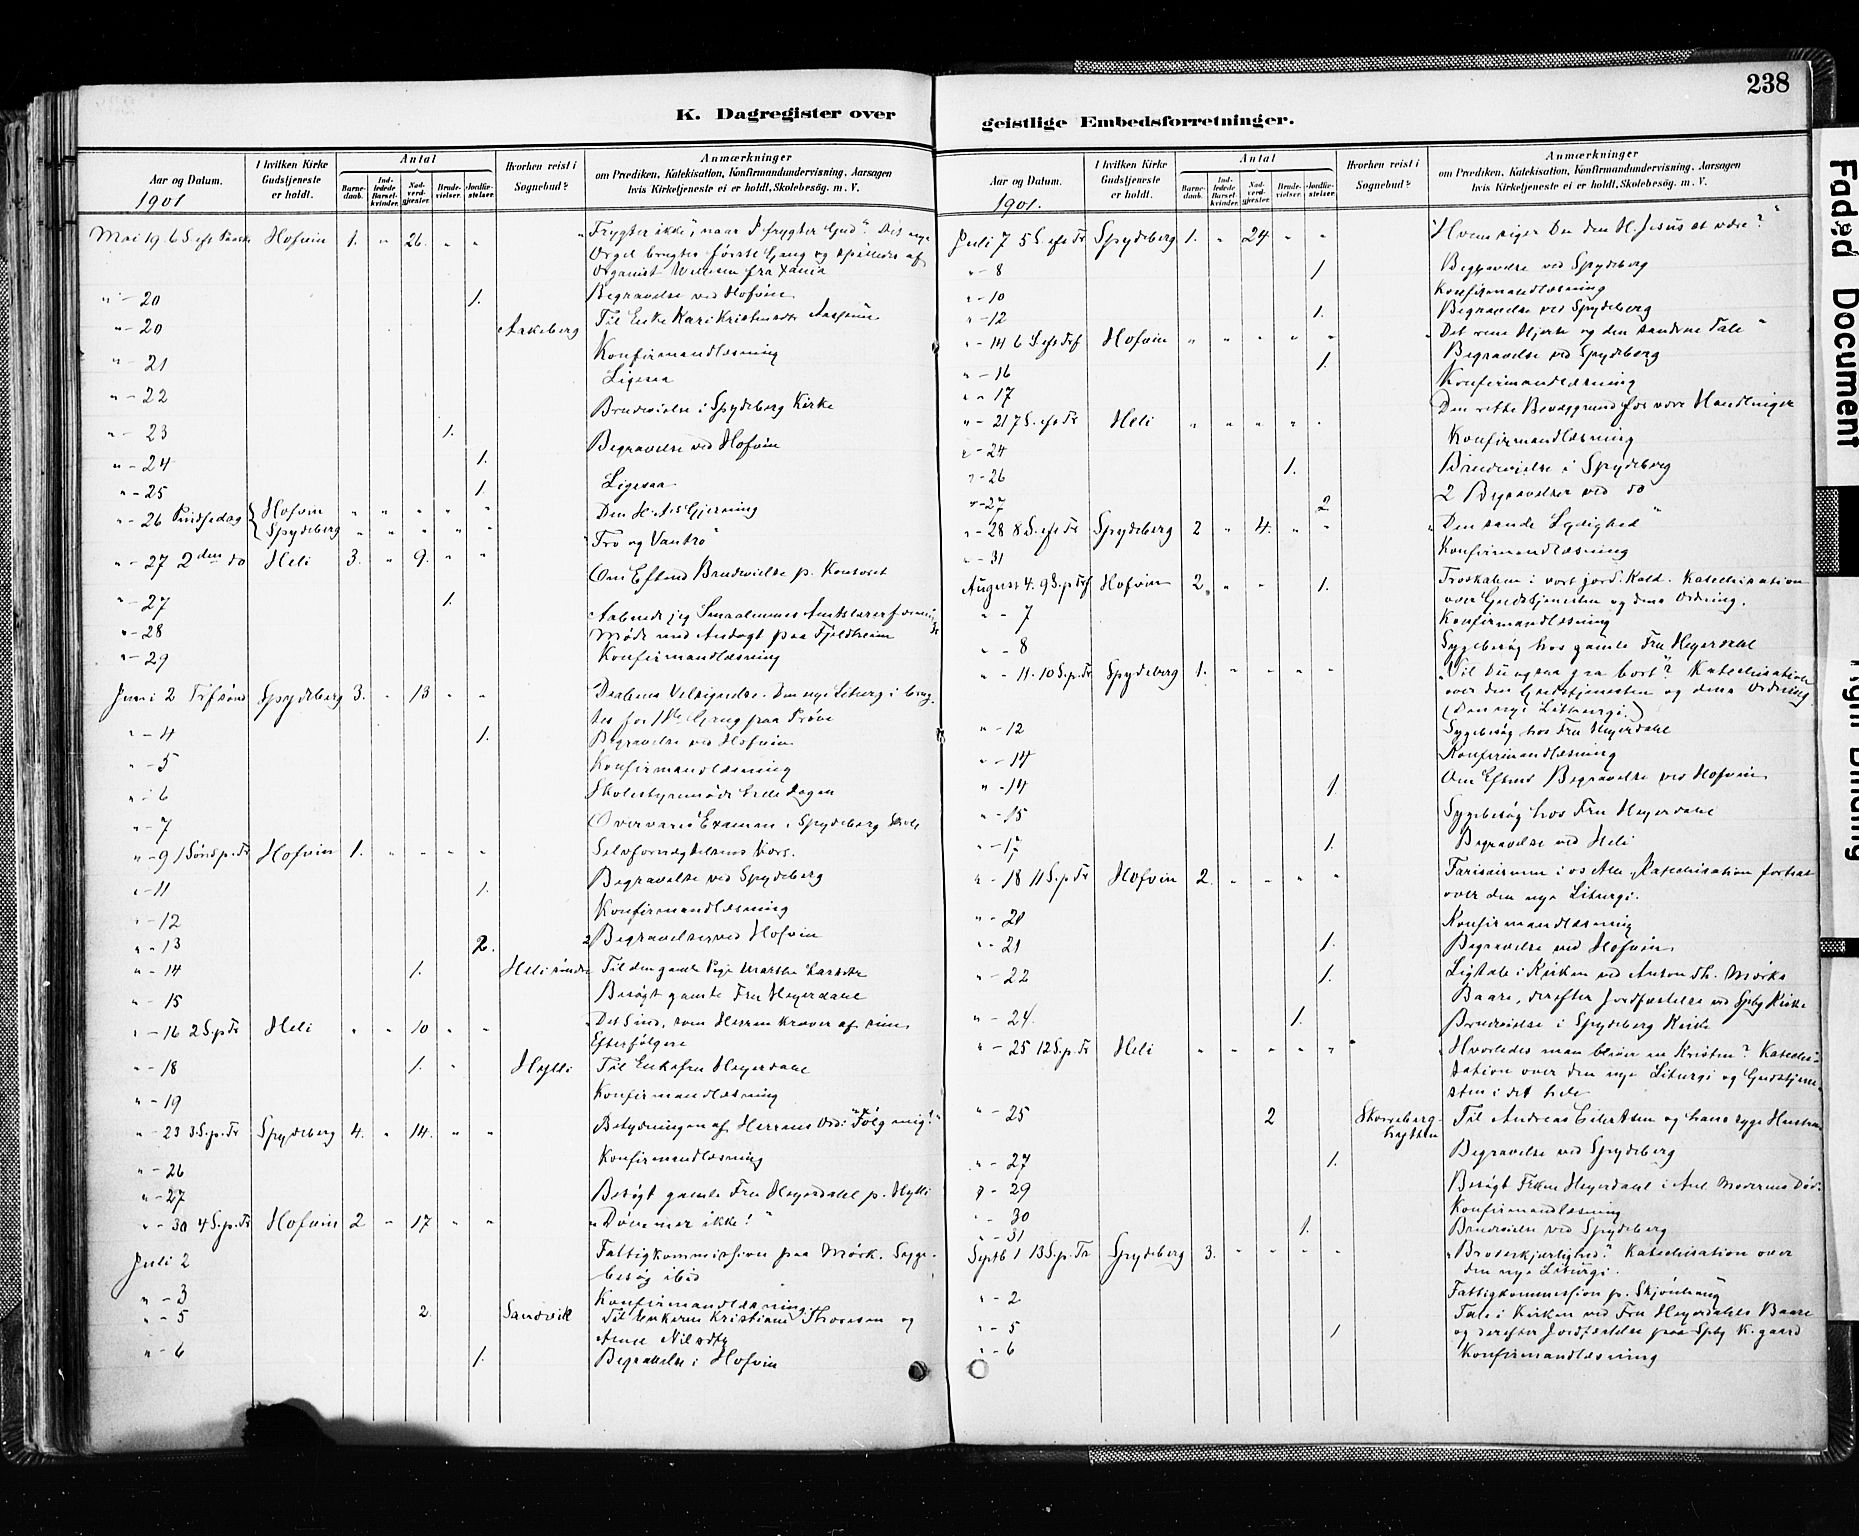 238
K. Dagregister over
geistlige Embedsforretninger.
Aar og Datum.
I hvilken Kirke Gudstjeneste er holdt.
Antal
Barnedaab.
Indledede Barselkvinder.
Nadverdgjester.
Brudevielser.
Jordfæstelser.
Hvorhen reist i Sognebud?
Anmærkninger
om Prædiken, Katekisation, Konfirmandundervisning, Aarsagen
hvis Kirketjeneste ei er holdt, Skolebesøg. m. V.
1901
Mai 19. 6 S. eft Paaske Hofvin 1. " 26. " " "Frygter ikke", naar I frygter Gud". Det nye
Orgel brugtes første Gang og spilledes af
Organist fra Xania
" - 20 1. Begravelse ved Hofvin
" - 20 Askeberg Til Enke Kari
" - 21 Konfirmandlæsning
" - 22 Ligesaa
" - 23 1. Brudevielse i Spydeberg Kirke
" - 24 1. Begravelse ved Hofvin
" - 25 1. Ligesaa
" - 26 Pindsedag Hofvin " " " " " Den H. A's Gjerning
Spydeberg " " " " "Tro og Vantro"
" - 27 2den do Heli 3. " 9. " "
" - 27 1. Om Eftmd Brudevielse p. Kontoret
" - 28 Aabnede jeg Smaalenenes Amtslærerforenings
Møde med Andagt paa Fjeldheim
" - 29 Konfirmandlæsning
Juni 2 Trf sønd Spydeberg 3. " 13 " " Daabens Velsignelse. Den nye Liturgi brug-
tes for 1ste Gang paa Prøve
" - 4 1. Begravelse ved Hofvin
" - 5 Konfirmandlæsning
" - 6 Skolestyremøde hele Dagen
" - 7 Overværet Examen i Spydeberg Skole
" - 9 1 Sønd p. Tr Hofvin 1. " " " " Selvfornægtelsens Kors.
" - 11 1. Begravelse ved Spydeberg
" - 12 Konfirmandlæsning
" - 13 2. 2 Begravelser ved Hofvin
" - 14 1. Heli søndre Til den gamle Pige Marthe
" - 15 Besøgt gamle Fru Heyerdahl
" - 16 2 S. p Tr Heli " " 10 " " "Det Sind, som Herren kræver af sine
Efterfølgere
" - 18 1. " Hylli Til Enkefru Heyerdahl
" - 19 Konfirmandlæsning
" - 23 3 S. p. Tr Spydeberg 4. " 14. " " Betydningen af Herrens Ord: "Følg mig!"
" - 26 Konfirmandlæsning
" - 27 Besøgt gamle Fru Heyerdahl p. Hylli
" - 30 4 S. p. Tr Hofvin 2 " 17 " " "Dømmer ikke!"
Juli 2 Fattigkommission paa Mørk. Syge-
besøg ibid
" - 3 Konfirmandlæsning
" - 5 2 Sandvik Til Enkerne Kristiane Thoresen og
Anne Nilsdtr
" - 6 1. Begravelse i Hofvin
Aar og Datum.
I hvilken Kirke Gudstjeneste er holdt.
Antal
Barnedaab.
Indledede Barselkvinder.
Nadverdgjester.
Brudevielser.
Jordfæstelser.
Hvorhen reist i Sognebud?
Anmærkninger
om Prædiken, Katekisation, Konfirmandundervisning, Aarsagen
hvis Kirketjeneste ei er holdt, Skolebesøg. m. V.
1901.
Juli 7 5 S. eft Tr Spydeberg 1. " 24. " " "Hvem siger Du den H. Jesus at være?"
" - 8 1 Begravelse ved Spydeberg
" - 10 Konfirmandlæsning
" - 12 1. Begravelse ved Spydeberg
" - 14 6 S eft Trf Hofvin " " " " " "Det rene Hjerte og den sanddrue Tale"
" - 16 1. Begravelse ved Spydeberg
" - 17 Konfirmandlæsning
" - 21 7 S. eft Tr Heli " " " " " Den rette Bevæggrund for vore Handlinger
" - 24 Konfirmandlæsning
" - 26 1. Brudevielse i Spydeberg
" - 27 2 2 Begravelser ved do
" - 28 8 S. eft Tr Spydeberg 2 " 4. " " "Den sande Lydighed"
" - 31 Konfirmandlæsning
August 4. 9 S. p Trf Hofvin 2. " " 1. Troskaben i vort jord. Kald. Katechisation
over Gudstjenesten og dens Ordning.
" - 7 Konfirmandlæsning
" - 8 Sygebesøg hos gamle Fru Heyerdahl
" - 11. 10 S. p. Tr Spydeberg 1. " " " " "Vil Du ogsaa gaa bort"? Katechisation
over den Gudstjenesten og dens Ordning
(den nye Liturgi)
" - 12 Sygebesøg hos Fru Heyerdahl
" - 14 Konfirmandlæsning
" - 14 1 Om Eftmd Begravelse ved Hofvin
" - 15 Sygebesøg hos Fru Heyerdahl
" - 17 1. Begravelse ved Heli
" - 18 11 S. p Tr Hofvin 2. " " " " Farisæeren i os Alle. Katechisation fortsat
over den nye Liturgi.
" - 20 Konfirmandlæsning
" - 21 1. Begravelse ved Hofvin
" - 22 1. Ligtale i Kirken ved Anton Th. Mørks
Baare, derefter Jordfæstelse ved Spbg Kirke
" - 24. 1. Brudevielse i Spydeberg Kirke
" - 25 12 S. p. Tr Heli " " " " " "Hvorledes man bliver en Kristen? Katechi-
sation over den nye Liturgi og Gudstjene-
sten i det hele
" - 25 2 hytten Til Andreas Eilertsen og hans syge Hustru
" - 27 1. Begravelse ved Spydeberg
" - 29 Besøgt Heyerdahl i Anl Moderens Død.
" - 30 Konfirmandlæsning
" - 31 1. Brudevielse ved Spydeberg
Septb 1 13 S. p. Tr Spydeberg 3. " " " " "Broderkjærlighed." Katechisation over
den nye Liturgi.
" - 2 Fattigkommission p. Skjønhaug
" - 5 1 Tale i Kirken ved Fru Heyerdahls Baare
og derefter Jordfæstelse paa Spbg K. gaard
" - 6 Konfirmandlæsning
Faded Document